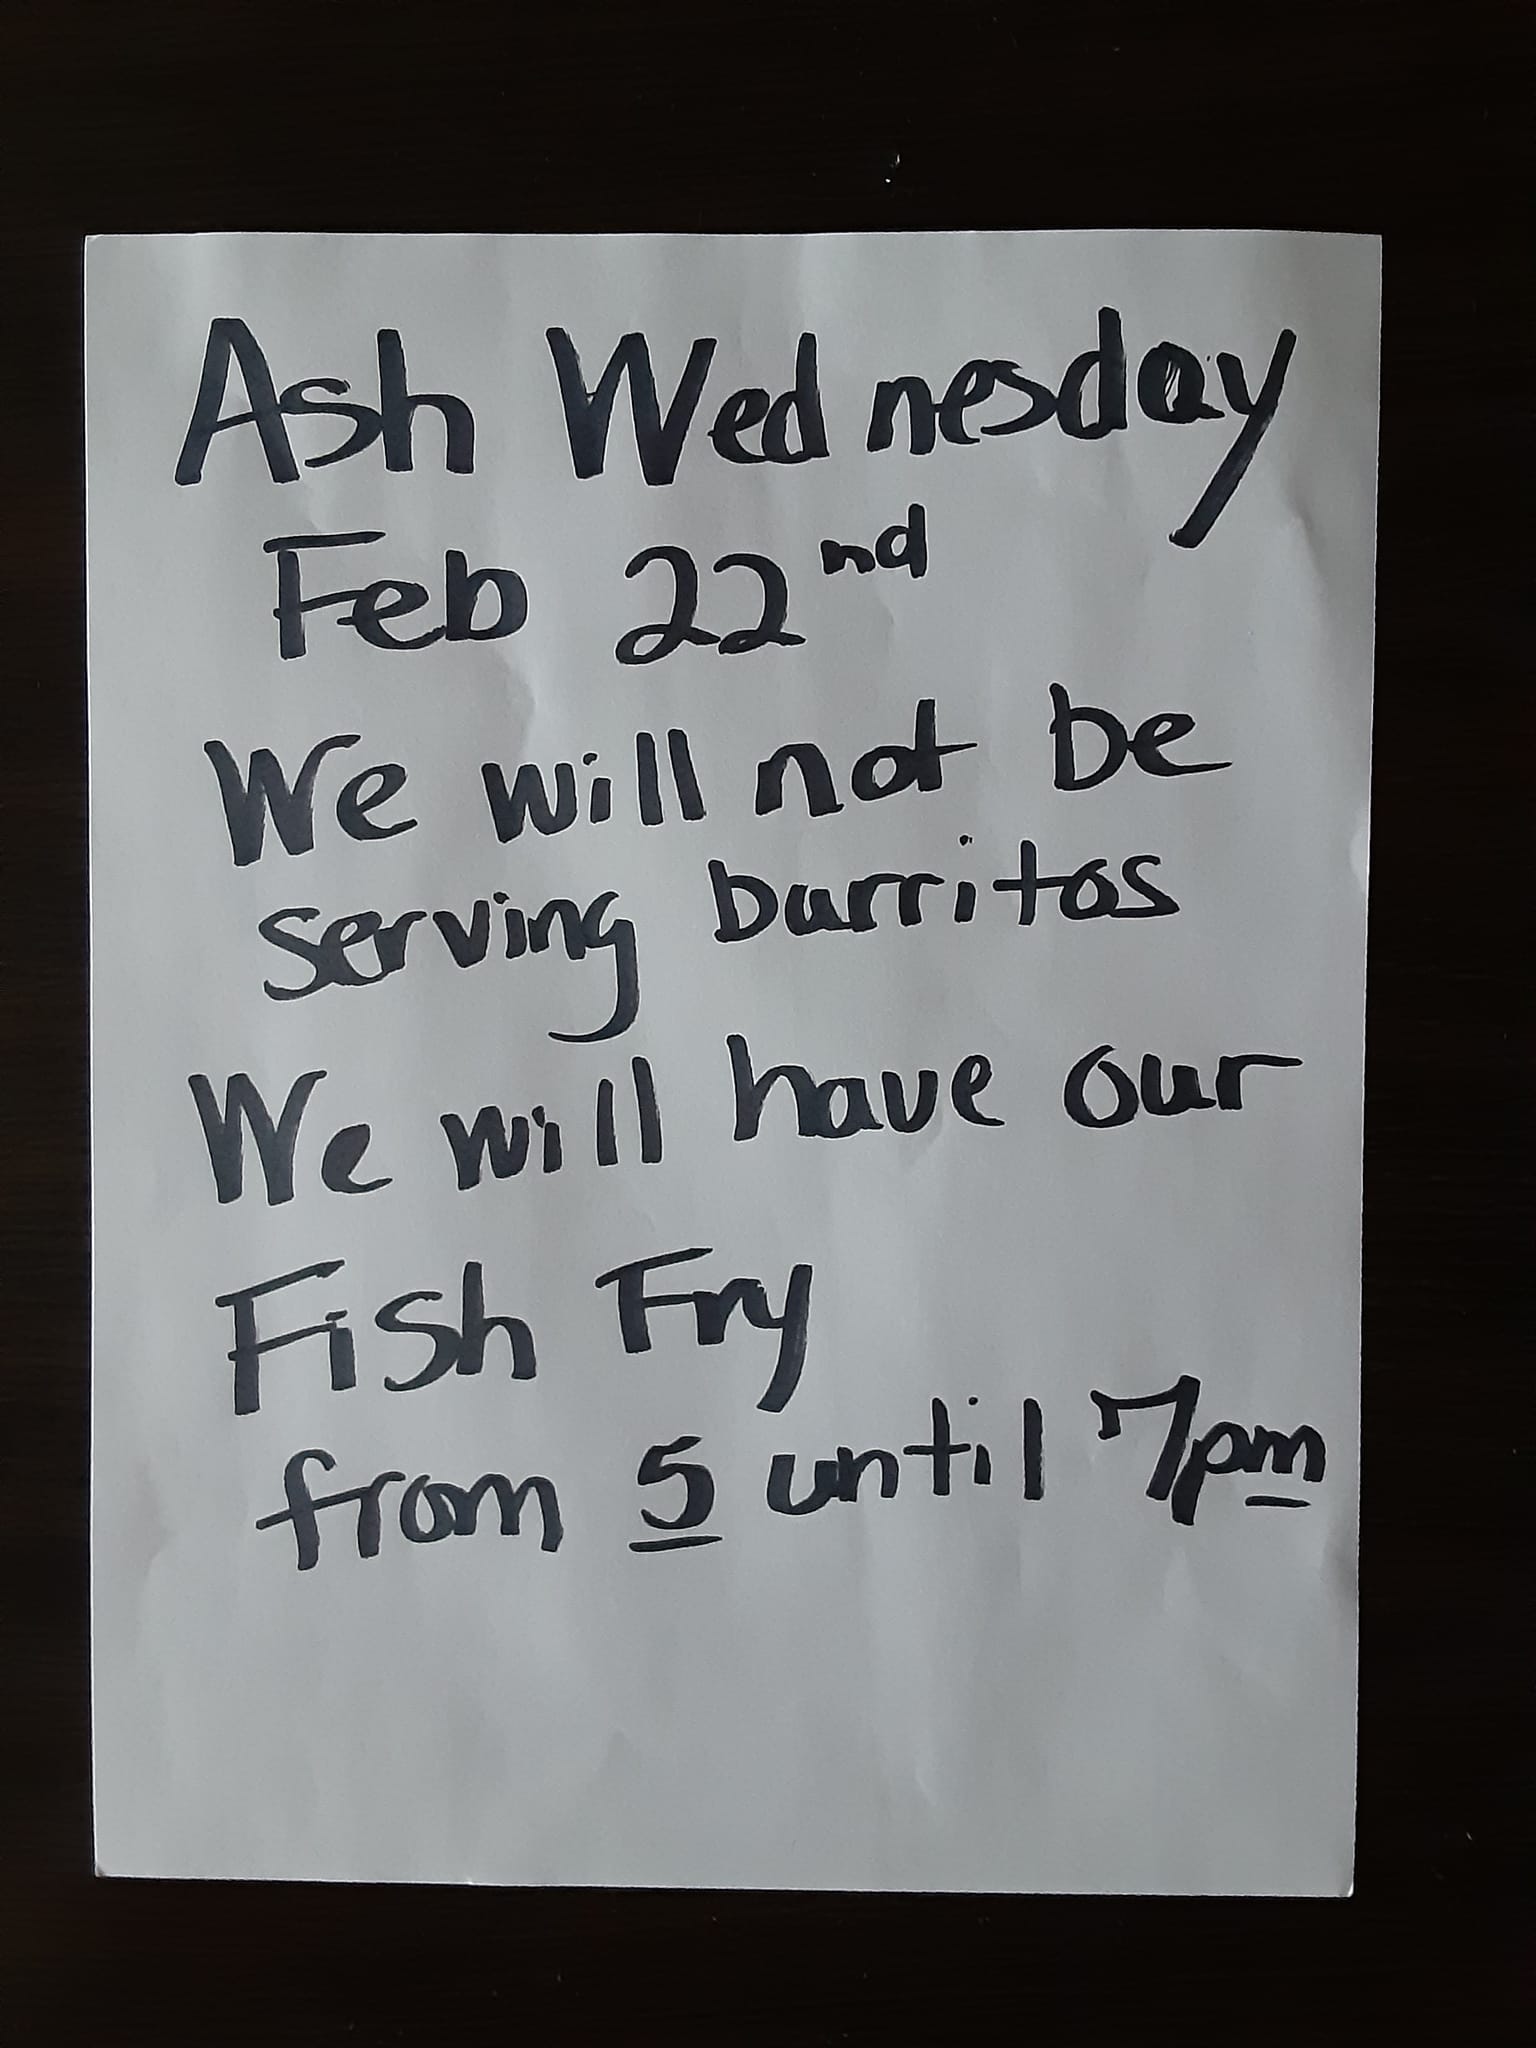 Ash Wednesday
Feb 22nd
We will not be
serving burritos
We will have our
Fish Fry
from 5 until 7pm